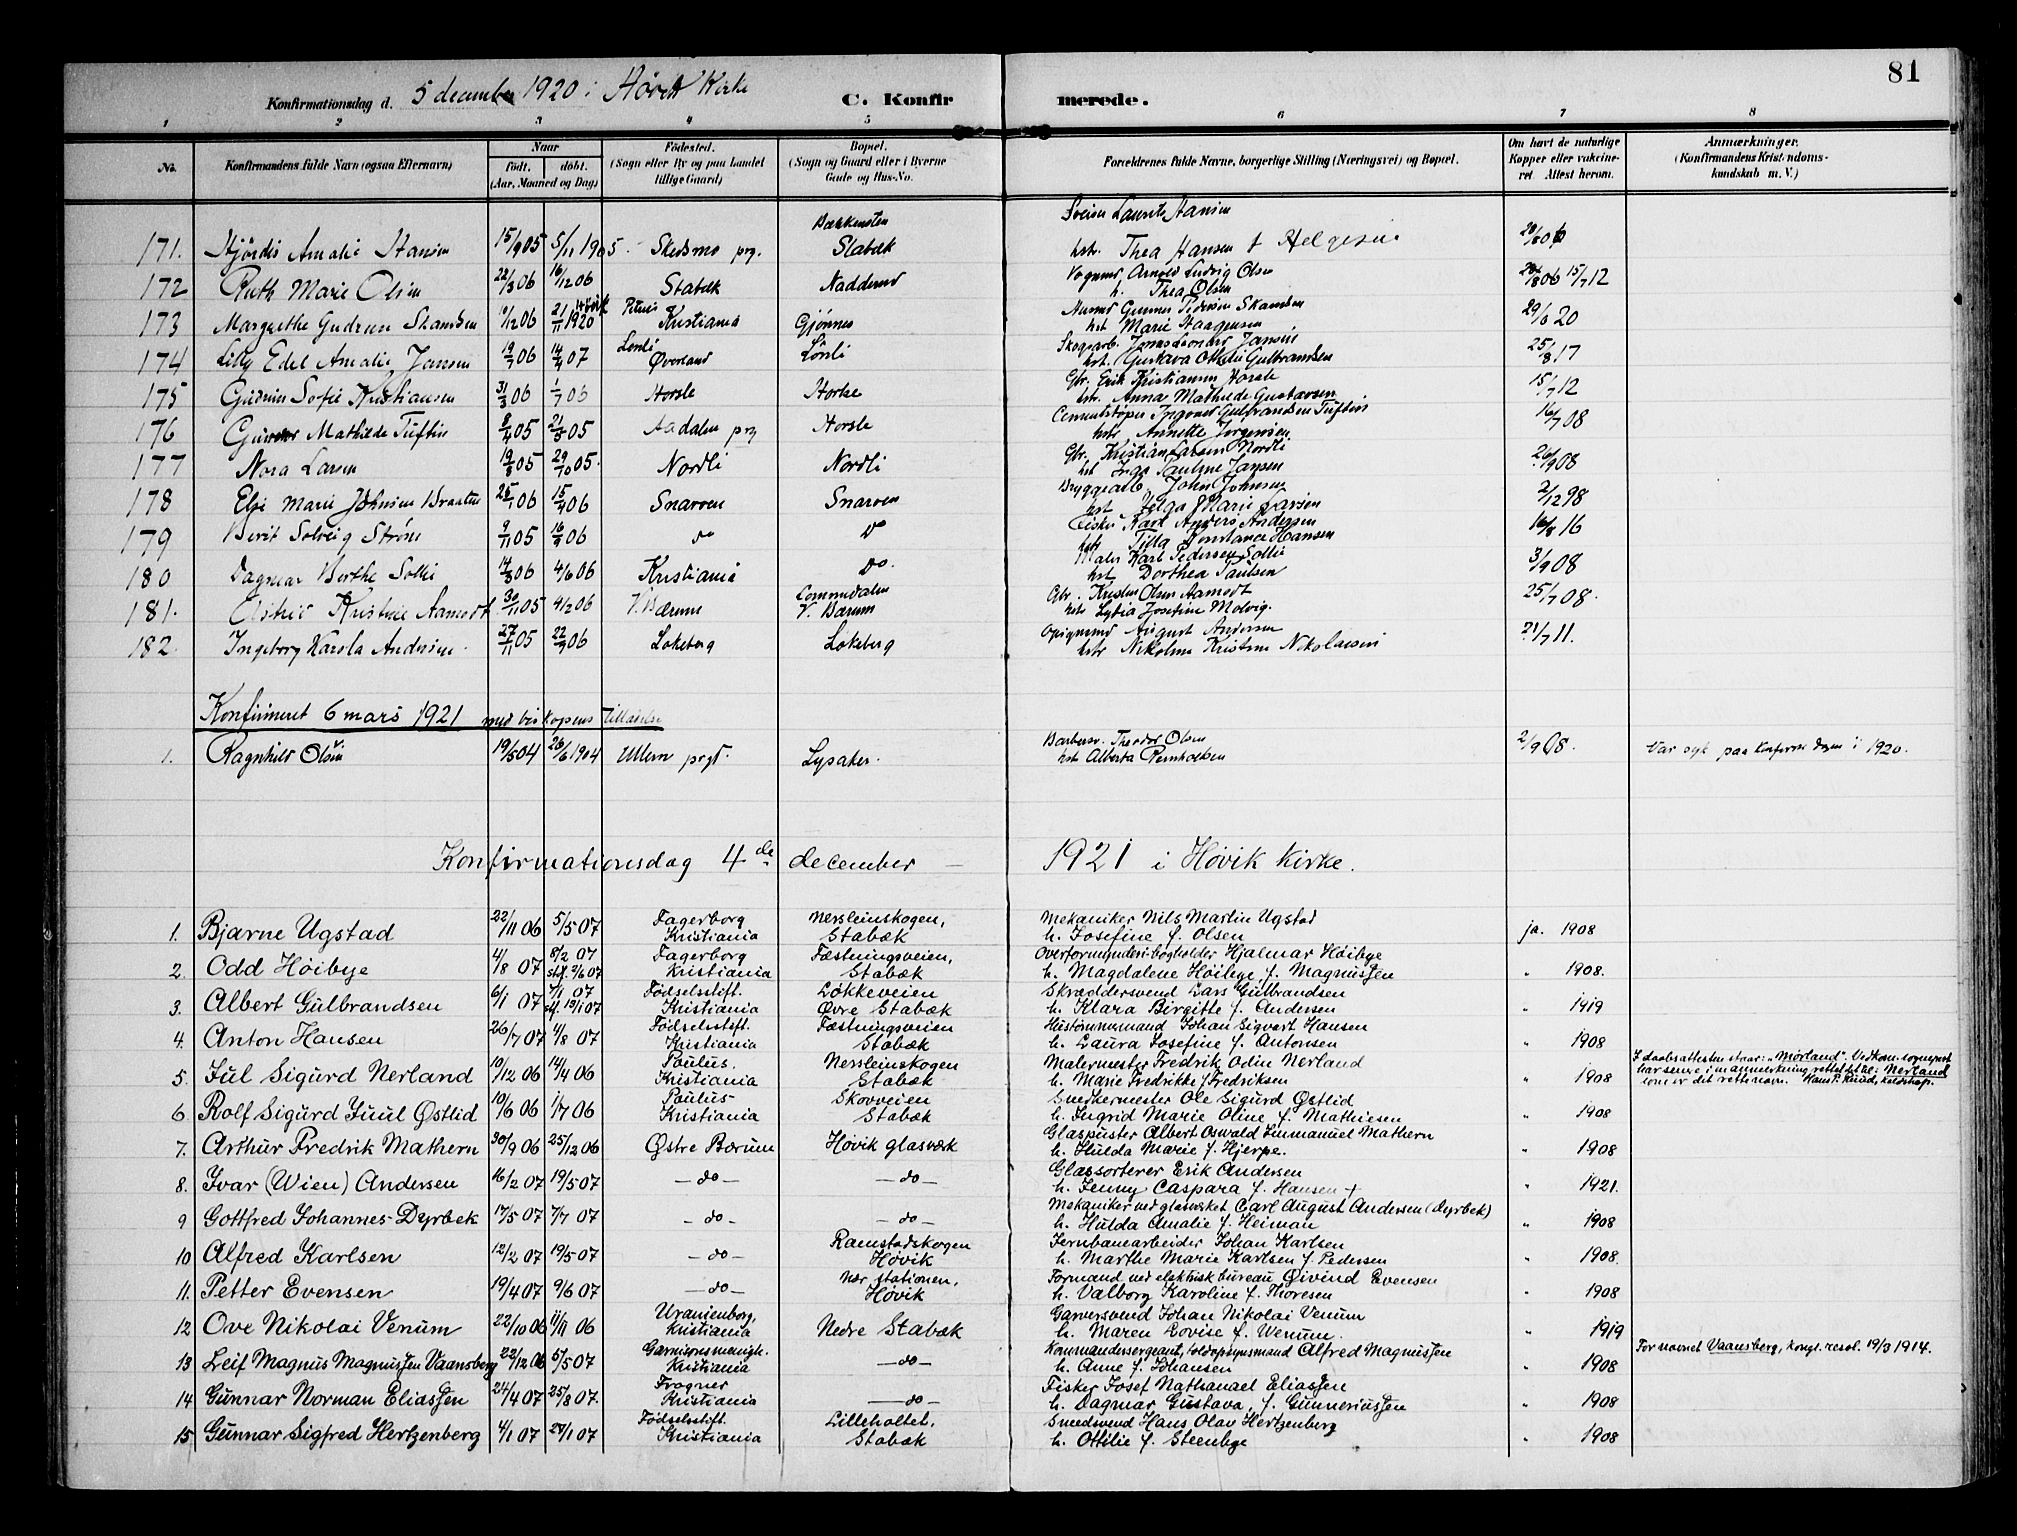 81
Konfirmationsdag d. 5 december 1920 i Høvik Kirke C. Konfirmerede.
1 2 3 4 5 6 7 8
No. Konfirmandens fulde Navn (ogsaa Efternavn) Naar født. døbt. (Aar, Maaned og Dag) Fødested. (Sogn eller By og paa Landet tillige Gaard) Bopæl. (Sogn og Gaard eller i Byerne Gade og Hus-No. Forældrenes fulde Navne, borgerlige Stilling (Næringsvei) og Bopæl. Om havt de naturlige Kopper eller vakcineret. Attest herom. Anmærkninger. (Konfirmandens Kristendomskundskab m. V.)
171. Hjørdis Amalie Hansen 15/9 05 5/11 1905. Skedsmo prg. Bækkensten Stabæk Sveiser Laurits Hansen hst. Thea Hansen f Helgesen
172 Ruth Marie Olsen 22/3 06 16/12 06 Stabæk Nadderud Vognmd Arnold Ludvig Olsen h. Thea Olsen 15/7 12
173 Margrethe Gudrun Skamsen 10/12 06 21/11 1920 Petrus Kristiania Gjønnes Gunnar Pedersen Skamsen hst Marie Haagensen 29/8 20
174 Lilly Edel Amalie Jansen 19/7 06 14/4 07 Lønli Øverland Lønli Skogsarb. Jonas Leonard Jansen hst. Gustava Otilie Gulbrandsen 25/8 17
175 Gudrun Sofie Kristiansen 31/3 06 1/7 06 Horsle Horsle Gbr. Erik Kristiansen Horsle hst. Anna Mathilde Gustavsen 15/7 12
176 Gunvor Mathilde Tuftin 8/4 05 21/5 05 Aadalen prg Horsle Cementstøper Ingvald Gulbrandsen Tuftin hstr Annette Jørgensen 16/7 08
177 Nora Larsen 19/8 05 29/10 05. Nordli Nordli Gbr. Kristian Larsen Nordli hst Inga Pauline Jansen 26/9 08
178 Else Marie Johnsen Braaten 25/1 06 15/4 06 Snarøen Snarøen Bryggearb. John Johnsen hst Helga Marie Larsen 2/12 98
179 Berit Solveig Strøm 9/11 05 16/9 06 do do Fisker Karl Anders Andersen hstr Tilla Konstance Hansen 16/8 16
180 Dagmar Berthe Sollie 14/3 06 4/6 06 Kristiania Do. Maler Karl Pedersen Sollie hst Dorthea Paulsen 3/9 08
181. Astrid Kristine Aamodt 30/11 05 4/2 06 V. Bærum Lommedalen V. Bærum Gbr. Kristen Olsen Aamodt hstr Lydia Josefine Molvig. 25/7 08.
182. Ingeborg Karola Andersen. 27/11 05 22/9 06 Løkeberg Løkeberg Opsynsmd August Andersen hstr Nikoline Kristine Nikolaisen 21/7 11.
Konfirmeret 6 mars 1921 med biskopens Tilladelse
1. Ragnhild Olsen 19/5 04 26/6 1904 Ullern prgt. Lysaker. Barbersv. Theodor Olsen hst Alberta Bernhoftsen 2/9 08. Var syk paa Konferm. dagen i 1920.
Konfirmationsdag 4de december 1921 i Høvik Kirke.
1. Bjarne Ugstad 22/11 06 5/5 07 Fagerborg Kristiania Nersleinskogen, Stabæk Mekaniker Nils Martin Ugstad h. Josefine f. Olsen ja. 1908
2. Odd Høibye 4/8 07 8/2 07 stf. 2/6 07 Fagerborg Kristiania Fæstningsveien, Stabæk Overformynderi-bogholder Hjalmar Høibye h. Magdalene Høibye f. Magnussen " 1908.
3. Albert Gulbrandsen 6/1 07 7/1 07 stf. 13/1 07 Fødselsstift. Kristiania Løkkeveien Øvre Stabæk Skræddersvend Lars Gulbrandsen h. Klara Birgitte f. Andersen " 1919
4. Anton Hansen 26/7 07 4/8 07 Fødselsstift. Kristiania Fæstningsveien Stabæk Hustømmermand Johan Sigvart Hansen h. Laura Josefine f. Antonsen " 1908
5. Jul Sigurd Nerland 10/12 06 14/4 06 Paulus. Kristiania Nersleinskogen Stabæk Malermester Fredrik Odin Nerland h. Marie Fredrikke f. Fredriksen " 1908 I daabsattesten staar: "Mørland". Vedkom. sogneprest har senere i anmerkning rettet dette til: Nerland som er det rette navn. Hans P. Knud, kaldskap.
6 Rolf Sigurd Juul Østlid 10/6 06 1/7 06 Paulus- Kristiania Skovveien Stabæk Snedkermester Ole Sigurd Østlid h. Ingrid Marie Oline f. Mathiesen " 1908
7. Arthur Fredrik Mathern 30/9 06 25/12 06 Østre Bærum Høvik glasværk Glaspuster Albert Oswald Immanuel Mathern h. Hulda Marie f. Hjerpe. " 1908
8. Ivar (Wien) Andersen 16/2 07 19/5 07 — do — — do — Glassorterer Erik Andersen h. Jenny Caspara f. Hansen + " 1921.
9 Gottfred Johannes Dyrbek 17/5 07 7/7 07 — do — — do — Mekaniker ved glasverket Carl August Andersen (Dyrbek) h. Hulda Amalie f. Heiman " 1908
10 Alfred Karlsen 12/2 07 19/5 07 — do — Ramstadskogen Høvik Jernbanearbeider Johan Karlsen h. Marthe Marie Karlsen f. Pedersen " 1908.
11. Petter Evensen 19/4 07 9/6 07 — do — Nær stationen, Høvik Formand ved elektrisk bureau Øivind Evensen h. Valborg Karoline f. Thoresen " 1908
12 Ove Nikolai Venum 22/10 06 11/11 06 Uranienborg, Kristiania Nedre Stabæk Garversvend Johan Nikolai Venum h. Maren Lovise f. Wenum. " 1919
13 Leif Magnus Magnussen Vaansberg 22/12 06 5/5 07 Garnisonsmenigh. Kristiania — do — Kommandersergeant, toldopsynsmand Alfred Magnussen h. Anne f. Johansen " 1908 For navnet Vaansberg, kongl. resol. 19/3 1914.
14 Gunnar Norman Eliassen 24/4 07 25/8 07. Frogner Kristiania — do — Fisker Josef Nathanael Eliassen h. Dagmar Gustava, f. Gunneriussen " 1908
15 Gunnar Sigfred Hertzenberg 4/1 07 20/1 07 Fødselsstift. Kristiania Lilleholtet, Stabæk Smedsvend Hans Olav Hertzenberg h. Ottilie f. Steenbye " 1908